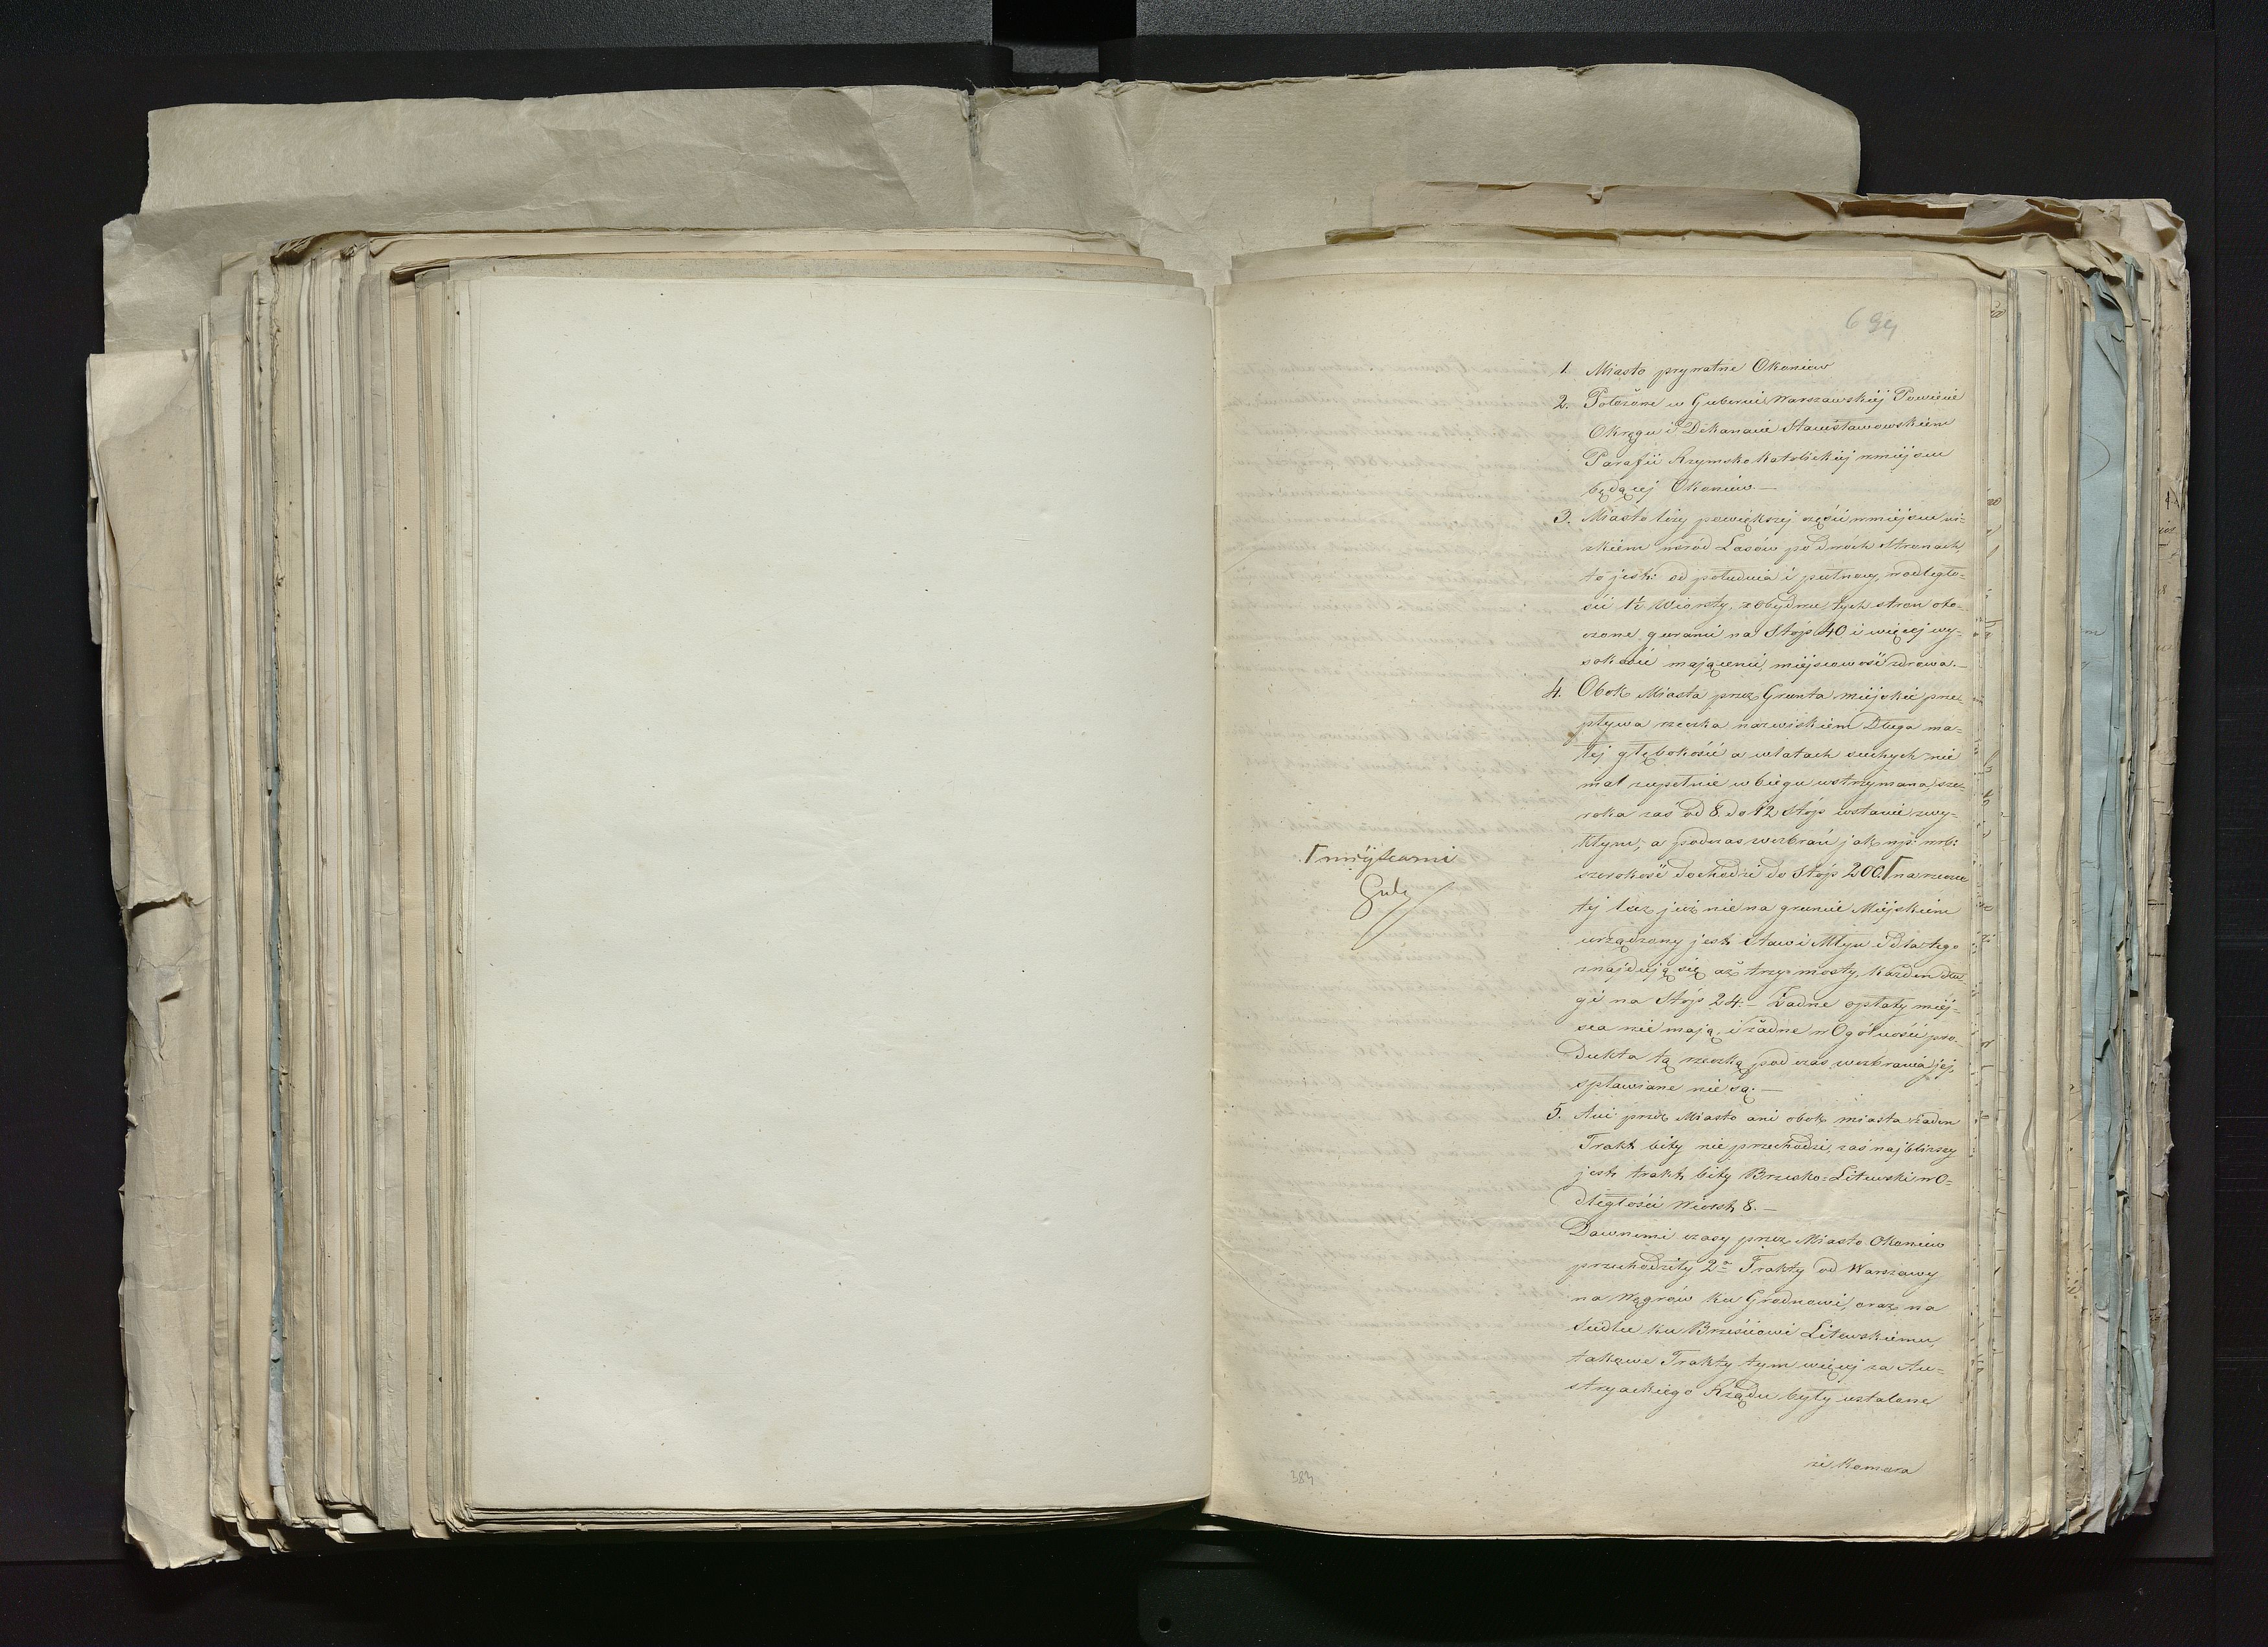 694
1. Miasto prywatne Okoniew
2. Położone w Gubernii Warszawskiej Powiecie
Okręgu i Dekanacie Stanisławowskiem
Parafii Rzymsko Katolickiej w miejscu
będącej Okoniew. —
3. Miasto leży powiększej części w miejscu ni=
skiem wśród Lasów po dwóch Stronach,
to jest: od południa i północy, w odległo=
ści 1½ Wiorsty, z obydwu tych stron oto=
czone górami na Stóp 40 i więcej wy=
sokości mającemi, miejscowość zdrowa. —
4. Obok Miasta przez Grunta miejskie prze=
pływa rzeczka nazwiskiem Długa ma=
łej głębokości a w latach suchych nie
mal zupełnie w biegu wstrzymana, sze=
roka zaś od 8 do 12 Stóp w stanie zwy=
kłym, a podczas wezbrań jak np:
szerokość dochodzi do Stóp 200 ⌈ na rzeczce
tej lecz już nie na gruncie Miejskim
urządzony jest Staw i Młyn i dla tego
znajdują się aż trzy mosty, każden dłu=
gi na Stóp 24. — Żadne opłaty miej=
sca nie mają, i żadne w Ogólności pro=
dukta tą rzeczką podczas wezbrania jej,
spławiane nie są. —
5. Ani przez Miasto ani obok miasta żaden
Trakt bity nie przechodzi, zaś najbliższy
jest trakt bity Brzesko=Litewski w O=
dległości Wiorst 8. —
Dawnemi czasy przez Miasto Okoniew
przechodziły 2a Trakty od Warszawy
na Węgrów ku Grodnowi, oraz na
Siedlce ku Brześciowi Litewskiemu,
takowe Trakty tym więcej za Au=
stryackiego Rządu były ustalone
że Komora
⌈ miejscami
384